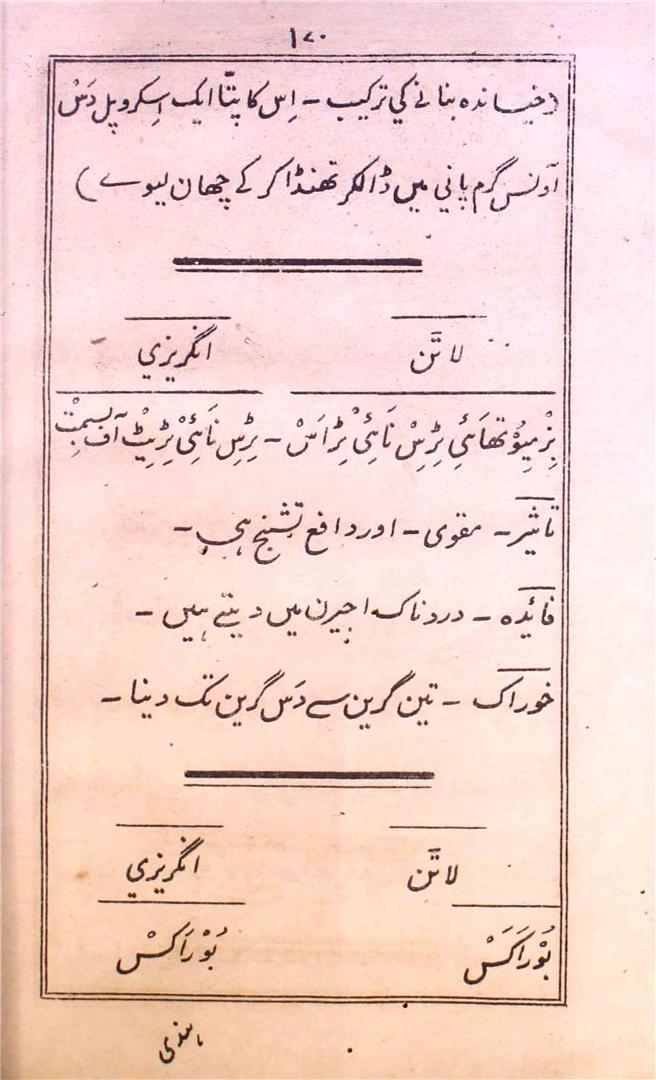 ۱۷۰
(خیساندہ بنانے کی ترکیب - اِس کا پتّا ایک اِسکروپل دَسْ
آونس گرم پانی میں ڈالکر تھنڈا کر کے چھان لیوے)
لاتَن انگریزي
بِزْمِیؤتھائي ٹِرِسْ نَائیْ ٹِرَاسْ - ٹِرِس نَائیْ ٹِرِیٹْ آف بِسمِتْ
تاثیر - مقوی - اور دافع تشنج ہی -
فائدہ - دردناک اجیرن میں دیتے ہیں -
خوراک - تین گرین سے دَس گرین تک دینا -
لاتَن انگریزي
بُوْرَاکَسْ بُوْرَاکسْ
ہندی